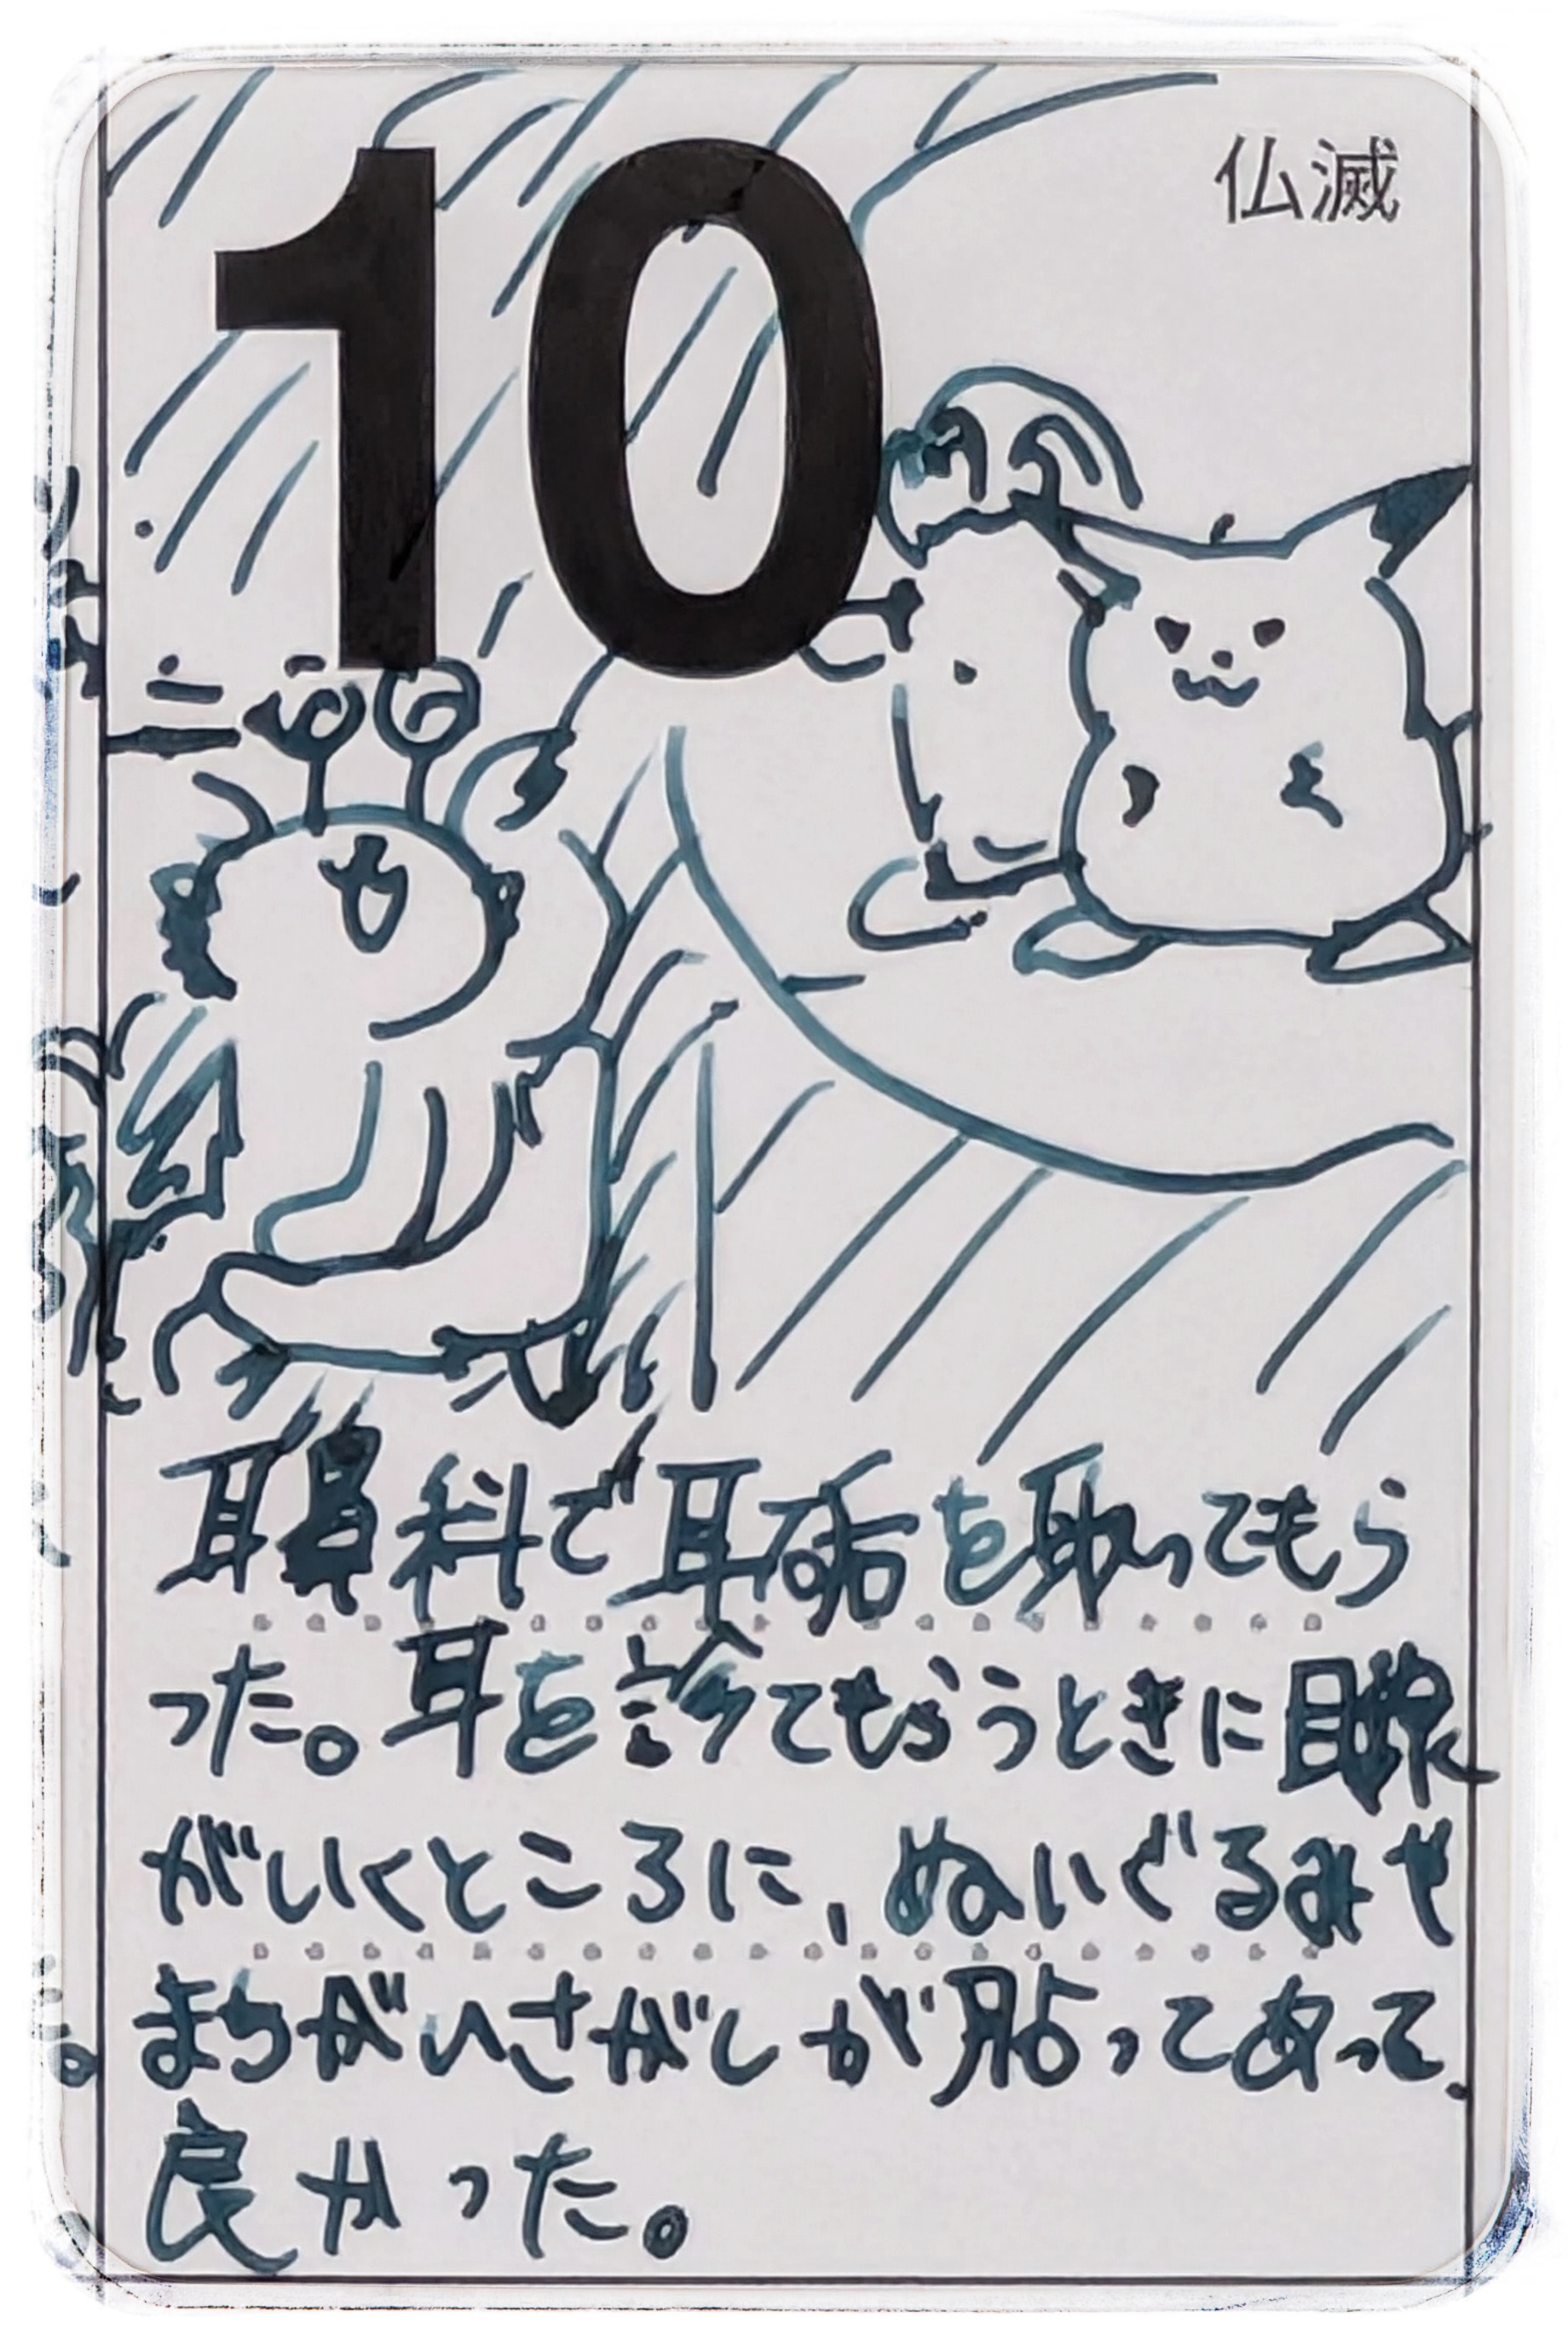 10
仏滅
耳鼻科で耳垢を取ってもら
った。耳を診てもらうときに目線
がいくところに、ぬいぐるみや
まちがいさがしが貼ってあって
良かった。